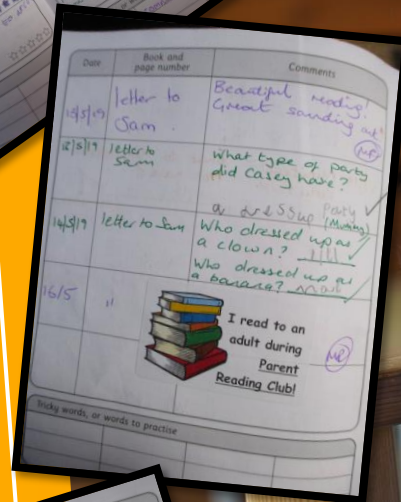 Date
Book and
page number
Comments
letter to
Sam.
Beautiful reading!
Great sounding out
MR
letter to
Sam
What type of party
did Casey have?
a dressup party
(Mummy)
14/5/19
letter to Sam
Who dressed up as
a clown? Jill
Who dressed up as
a banana?
16/5
"
I read to an
adult during
Parent
Reading Club!
MR
Tricky words, or words to practise